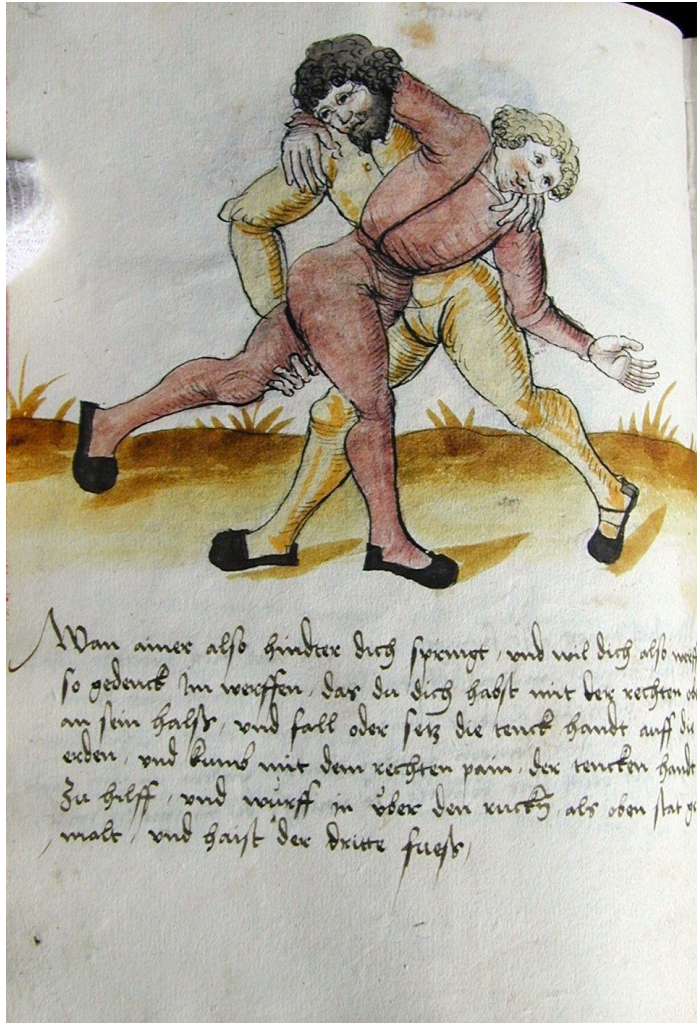 Wan ainer also hindter dich springt, und wil dich also werf
so gedenck Im werffen, das du dich habst mit der rechten
an sein halss, und fall oder setz die tenck handt auff die
erden, und kumb mit dem rechten pain, der tencken handt
Zu hilff, und würff in über den ruckn, als oben stat ge
malt, und haist der dritte fuess,